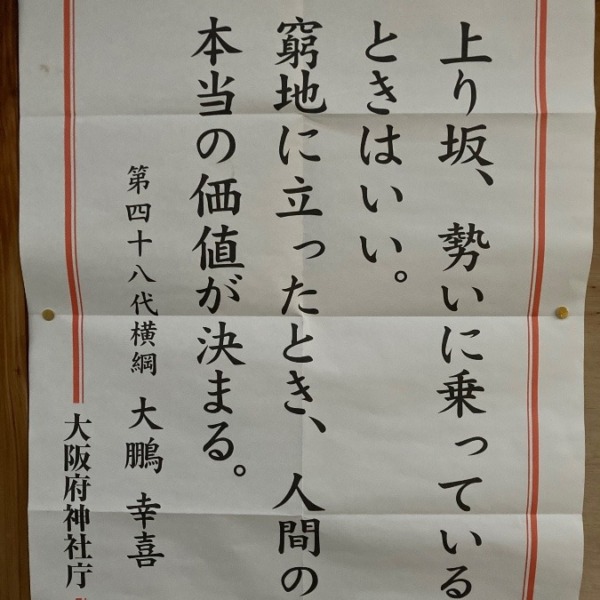 上り坂、勢いに乗っている
ときはいい。
窮地に立ったとき、人間の
本当の価値が決まる。
第四十八代横綱 大鵬 幸喜
大阪府神社庁